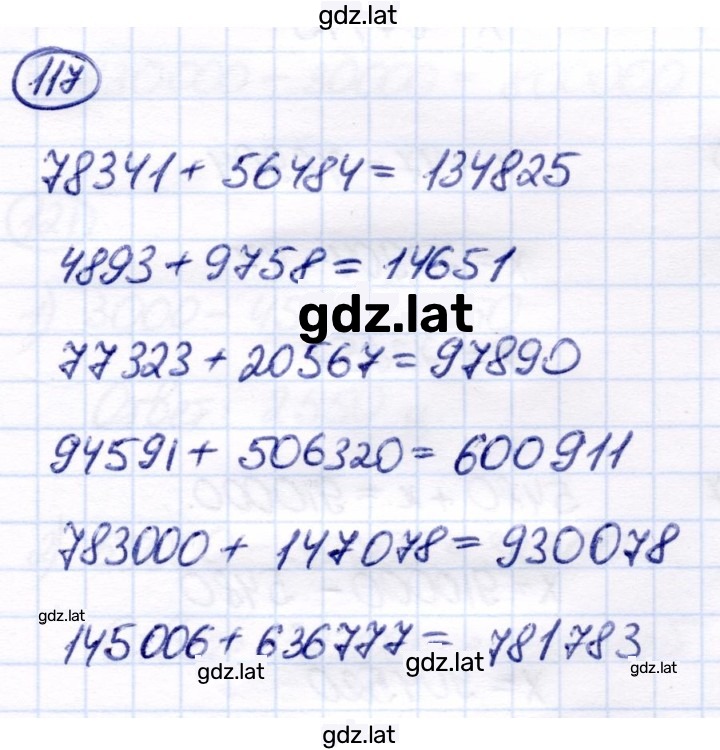 gdz.lat
117
78341 + 56484 = 134825
4893 + 9758 = 14651
gdz.lat
77323 + 20567 = 97890
94591 + 506320 = 600911
783000 + 147078 = 930078
gdz.lat
145006 + 636777 = 781783
gdz.lat gdz.lat gdz.lat
gdz.lat